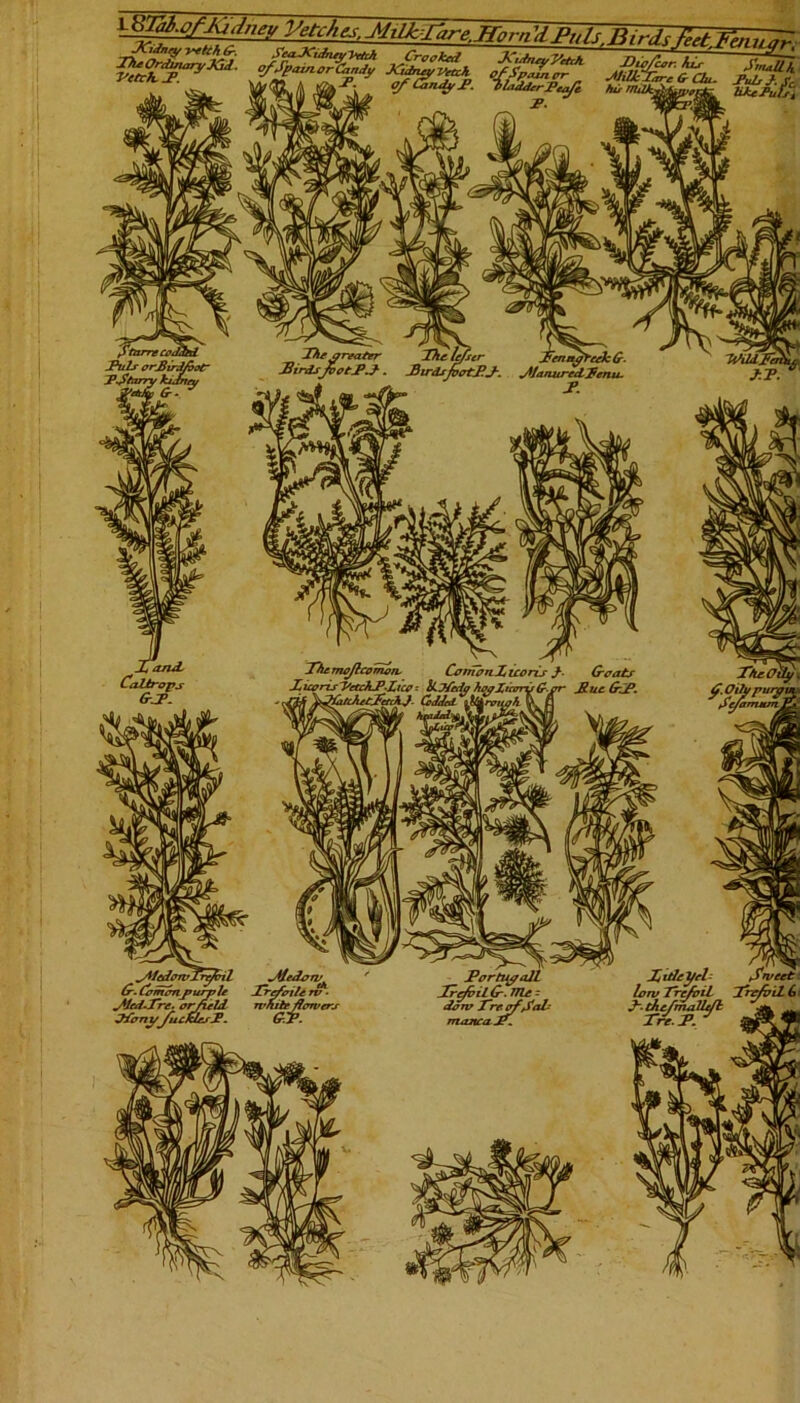 18 Tab. of Kidney Vetches, Milk-Tare, Horn'd Puls, Birds feet, Fenugr:
Kidney vetch G.
The Ordinary Kid.
Vetch. P.
Sea Kidney Vetch
of Spain or Candy
P.
Crooked
Kidney Vetch
of Candy P.
Kidney Vetch
of Spain or
bladder Pease
P.
Dioscor: his
Milk Tare G Clu.
his milk
Small h
Puls J. Sc
like Puls
Starre codded
Puls or Birdsfoot
P Starry kidney
Vetch G.
The greater
Birds foot P. J.
The lesser
Birds foot P. J.
Fenngreek G.
Manured Fenu.
P.
Wild Fenug
J. P.
L and
Caltrops
G. P.
The most common
Licoris Vetch P. Lico:
Hatchet Fetch J.
Comon Licoris J.
Codded
rough
headed
Goats
Rue G. P.
The Oily
G. Oily purgin
Sesamum P.
Medow Trefoil
G. Comon purple
Med. Tre. or field
Hony Suckles P.
Medow
Trefoile wth.
white flowers
G. P.
Portugall
Trefoil G. Me=
dow Tre of Sal=
manca P.
Litle yel=
low Trefoil
J. the smallest
Tre. P.
Sweet
Trefoil G